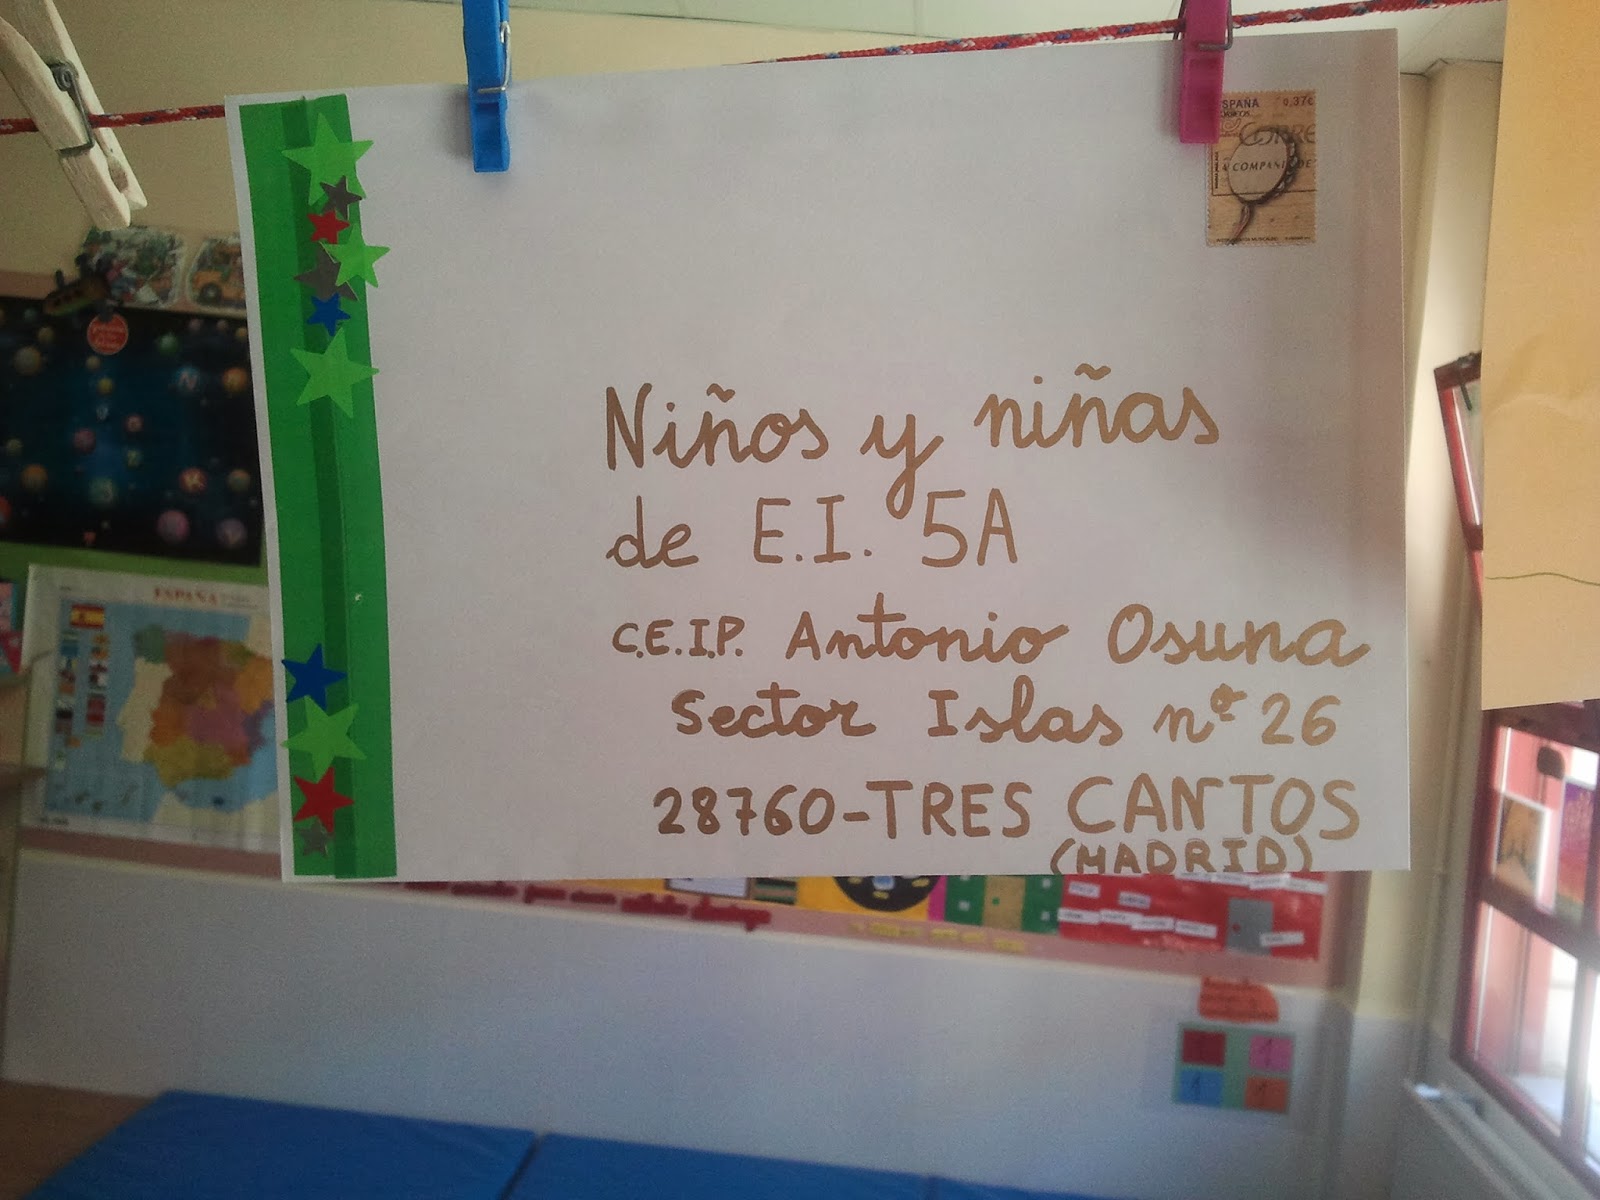 ESPAÑA 0,37€
CORREOS
CORRE
LA COMPAÑIA DE
Niños y niñas
de E.I. 5A
C.E.I.P. Antonio Osuna
Sector Islas nº 26
28760-TRES CANTOS
(MADRID)
ESPAÑA